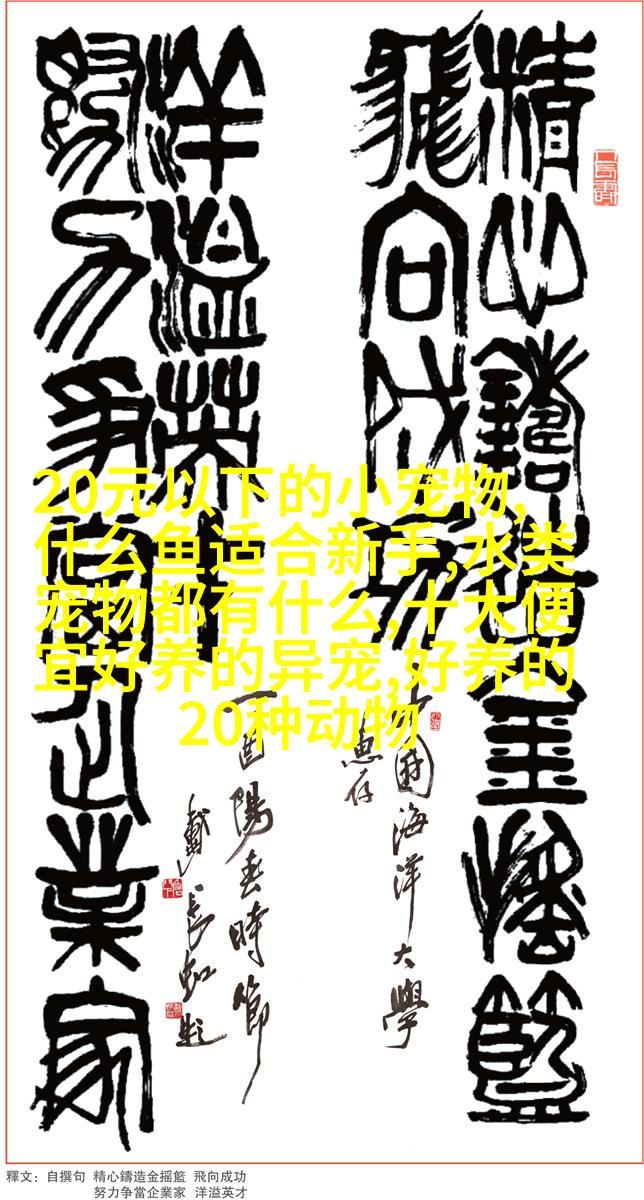 精心鑄造金摇籃
飛向成功
中國海洋大學
惠存
洋溢英才
努力争當企業家
丁酉陽春時節
戴長虹題
20元以下的小宠物,
什么鱼适合新手,水类
宠物都有什么,十大便
宜好养的异宠,好养的
20种动物
釋文：自撰句 精心鑄造金摇籃 飛向成功
努力争當企業家 洋溢英才